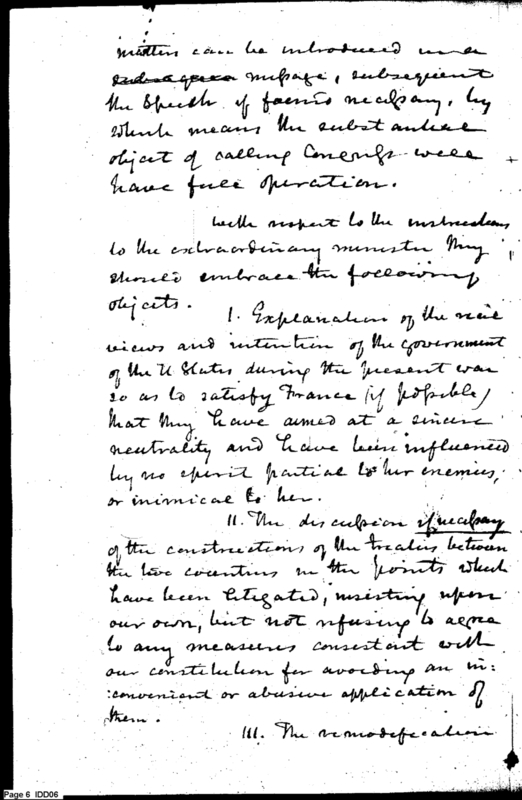 matters can be introduced in a
subsequen message, subsequent
the Speech if found necessary, by
which means the substantial
object of calling Congress will
have full operation.
With respect to the instructions
to the extraordinary minister they
should embrace the following
objects.
I. Explanation of the real
views and intention of the government
of the U States during the present war
so as to satisfy France (if possible)
that they have aimed at a sincere
neutrality and have been influenced
by no spirit partial to her enemies,
or inimical to her.
II. The discussion if necessary
of the constructions of the treaties between
the two countries in the points which
have been litigated, insisting upon
our own, but not refusing to agree
to any measures consistant with
our constitution for avoiding an in:
:convenient or abusive application of
them.
III. The remodification
Page 6 IDD06